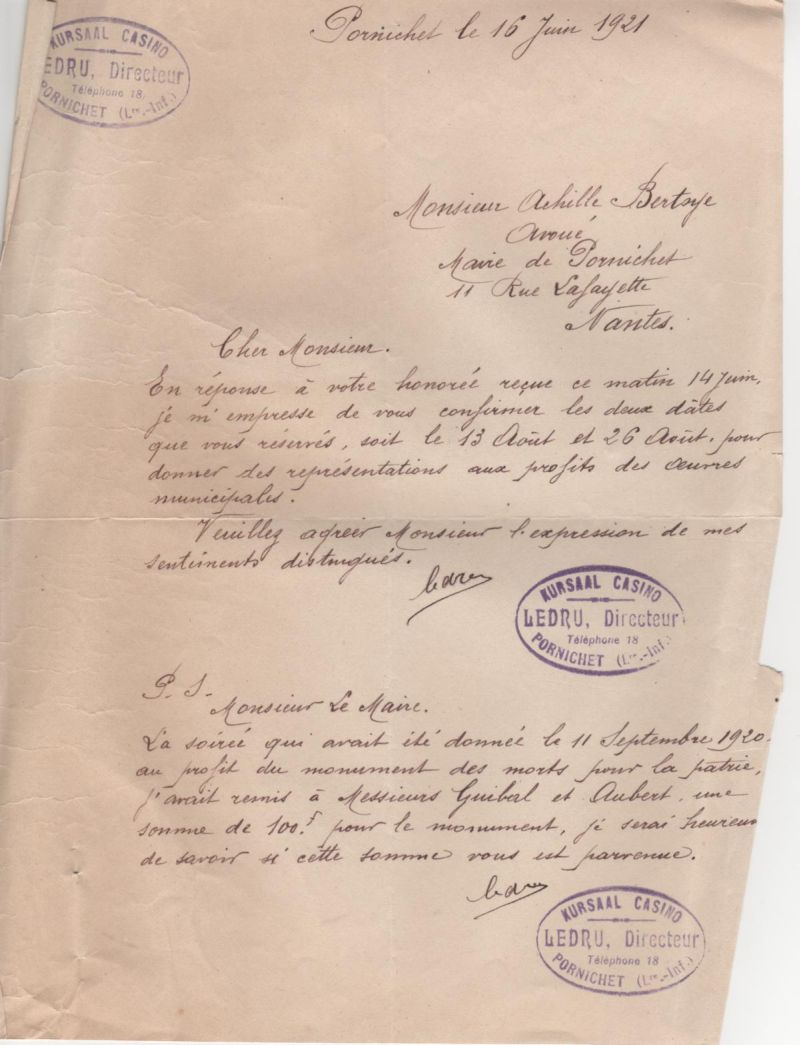 KURSAAL CASINO
LEDRU, Directeur
Téléphone 18
PORNICHET (Lre.-Inf.)
Pornichet le 16 Juin 1921
Monsieur Achille Bertrye
Avoué
Maire de Pornichet
11 Rue Lafayette
Nantes.
Cher Monsieur.
En réponse à votre honorée reçue ce matin 14 Juin,
je m'empresse de vous confirmer les deux dâtes
que vous réservés, soit le 13 Août et 26 Août. pour
donner des représentations aux profits des œuvres
municipales.
Veuillez agréer Monsieur l'expression de mes
sentiments distingués.
Ledru
KURSAAL CASINO
LEDRU, Directeur
Téléphone 18
PORNICHET (Lre.-Inf.)
P. S.
Monsieur Le Maire.
La soireé qui avait été donnée le 11 Septembre 1920.
au profit du monument des morts pour la patrie,
j'avait remis à Messieurs Guibal et Aubert, une
somme de 100.f pour le monument, je serai heureux
de savoir si cette somme vous est parvenue.
Ledru
KURSAAL CASINO
LEDRU, Directeur
Téléphone 18
PORNICHET (Lre.-Inf.)